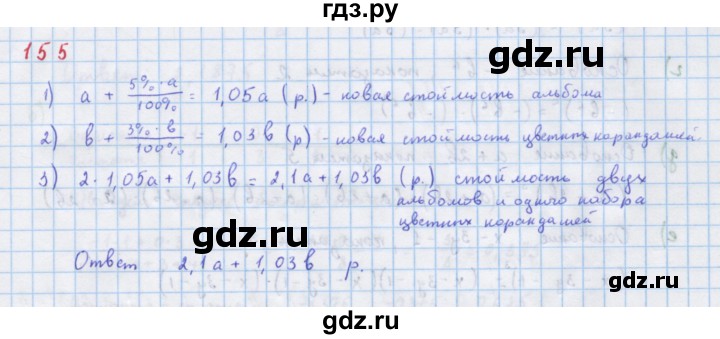 гдз.ру
155
1) a + 5%·a/100% = 1,05a (р.) - новая стоимость альбома
2) b + 3%·b/100% = 1,03b (р) - новая стоимость цветных карандашей
3) 2·1,05a + 1,03b = 2,1a + 1,03b (р.) стоимость двух
альбомов и одного набора
цветных карандашей
Ответ 2,1a + 1,03b р.
gdz.ru
gdz.ru
gdz.ru
gdz.ru